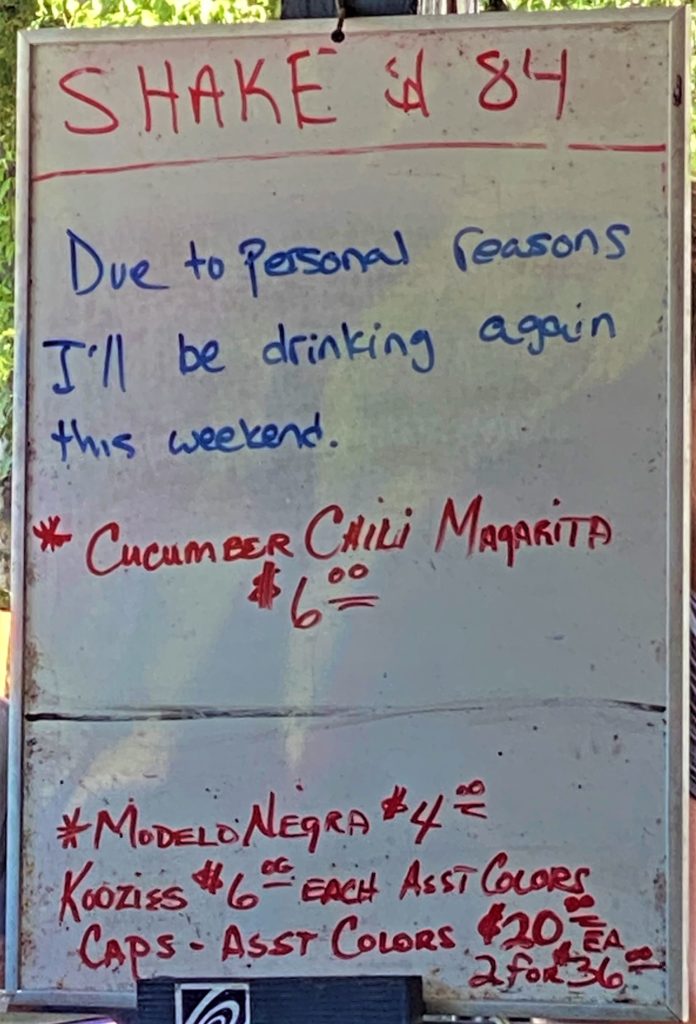 SHAKE $ 84
Due to Personal reasons
I'll be drinking again
this weekend.
* CUCUMBER CHILI MAGARITA
$6.00
*MODELO NEGRA $4.00
KOOZIES $6.00 EACH ASST COLORS
CAPS - ASST COLORS $20.00 EA
2 FOR $36.00